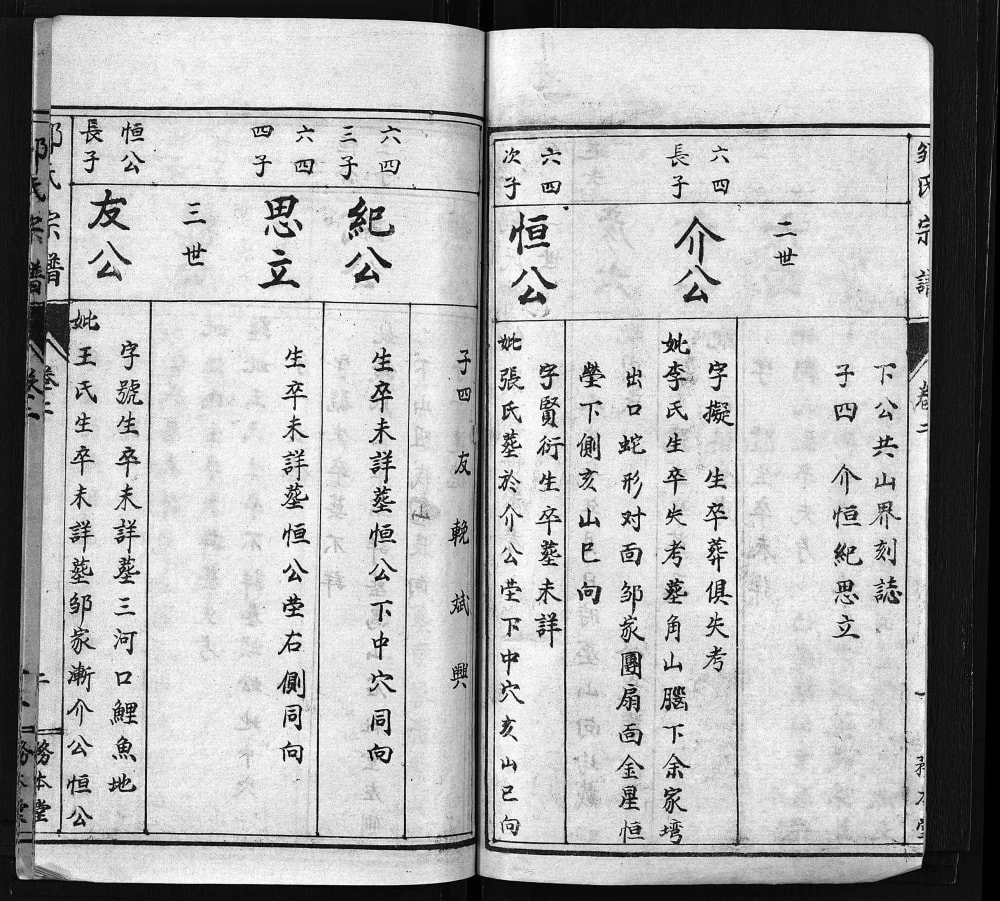 鄒氏宗譜
卷二
一
務本堂
下公共山界刻誌
子四 介恒紀思立
二世
六四
長子
介公
字擬 生卒葬俱失考
妣李氏生卒失考墓角山腦下余家塆
出口蛇形对面邹家團扇面金星恒
塋下側亥山巳向
六四
次子
恒公
字賢衍生卒墓未詳
妣張氏墓於介公塋下中穴亥山巳向
子四 友 輓 斌 興
六四
三子
紀公
生卒未詳墓恒公下中穴同向
六四
四子
思立
生卒未詳墓恒公塋右側同向
三世
恒公
長子
友公
字號生卒未詳墓三河口鯉魚地
妣王氏生卒未詳墓邹家漸介公恒公
氏宗譜
卷二
二
務本堂